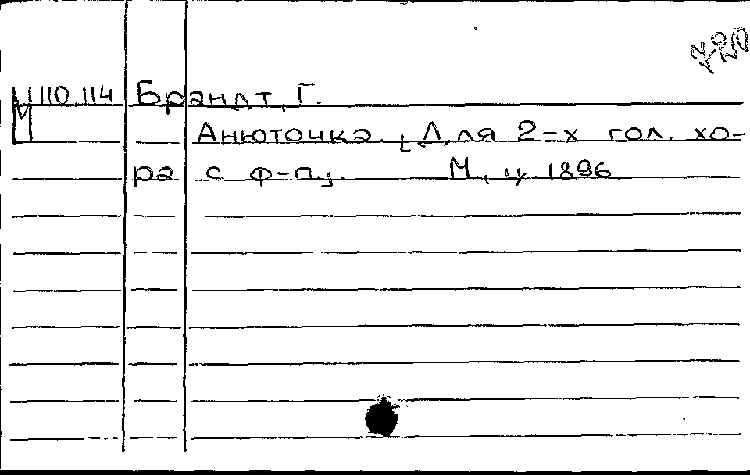 7-20
М 110.114 Брандт, Г.
Анюточка. [Для 2-х гол. хо-
ра с ф-п]. М., ц. 1896